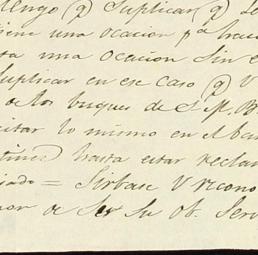 tengo q suplicar q
tiene una ocacion pª
ta una ocacion sin
uplicar en ese caso q V
de los buques de S. M. B.
citar lo mismo en el
hasta estar reclam
jado = Sirbase V recono
nor de Ser Su ob. Serv